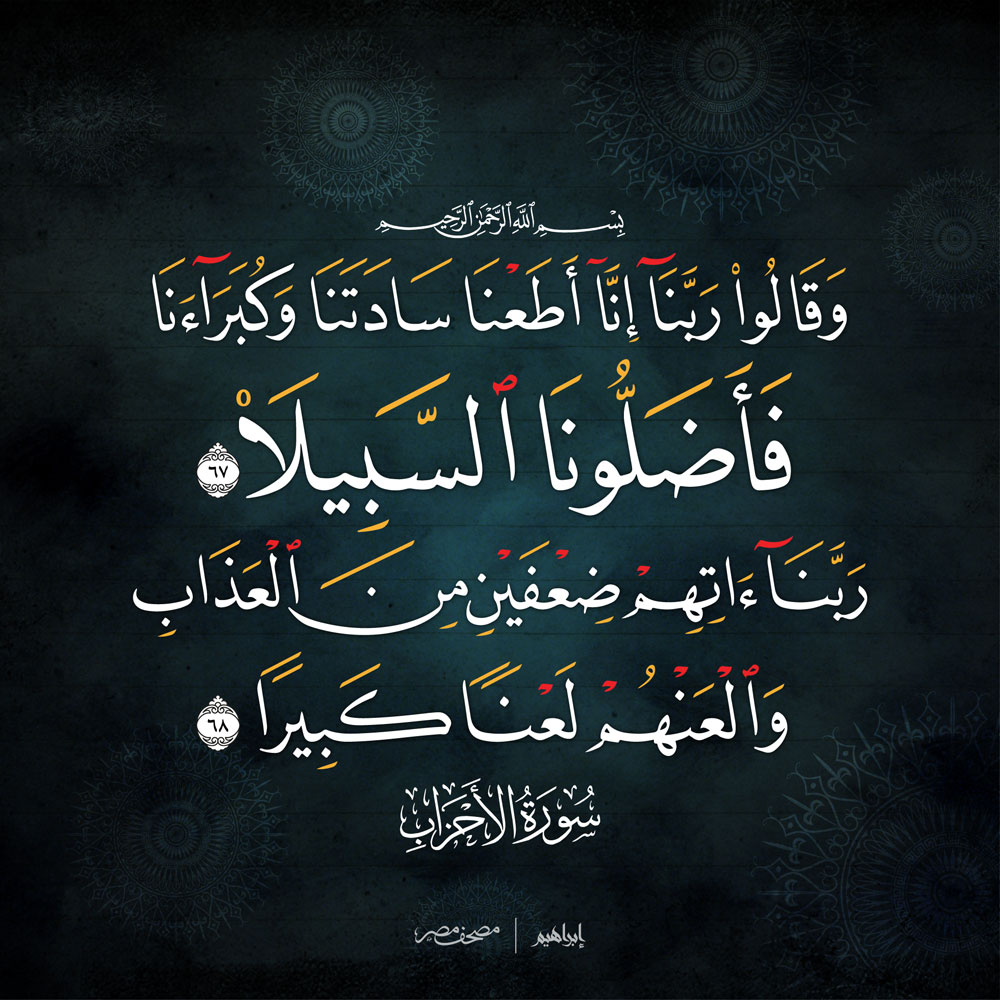 بِسْمِ ٱللَّهِ ٱلرَّحْمَٰنِ ٱلرَّحِيمِ
وَقَالُوا۟ رَبَّنَآ إِنَّآ أَطَعْنَا سَادَتَنَا وَكُبَرَآءَنَا
فَأَضَلُّونَا ٱلسَّبِيلَا۠ ٦٧
رَبَّنَآ ءَاتِهِمْ ضِعْفَيْنِ مِنَ ٱلْعَذَابِ
وَٱلْعَنْهُمْ لَعْنًا كَبِيرًا ٦٨
سُورَةُ الأَحْزَابِ
إبراهيم | مصحف مصر